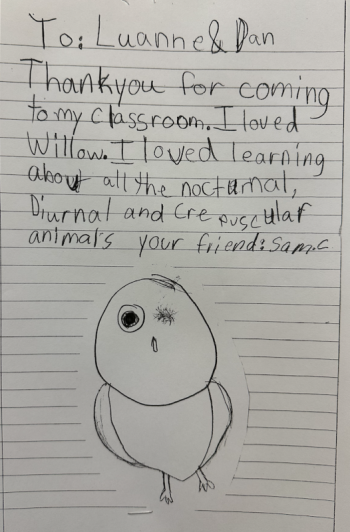 To: Luanne & Dan
Thankyou for coming
to my classroom. I loved
Willow. I loved learning
about all the nocturnal,
Diurnal and Crepuscular
animals your friend: Sam.C